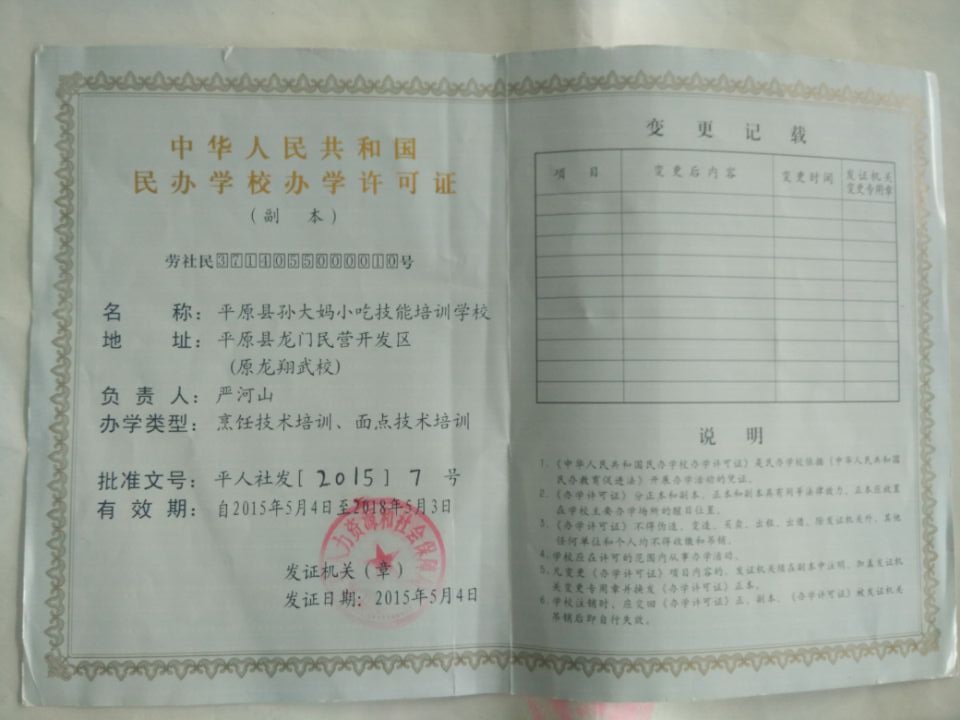 中华人民共和国
民办学校办学许可证
（副 本）
劳社民3714055000010号
名 称：平原县孙大妈小吃技能培训学校
地 址：平原县龙门民营开发区
(原龙翔武校)
负 责 人：严河山
办学类型：烹饪技术培训、面点技术培训
批准文号：平人社发[2015]7 号
有 效 期：自2015年5月4日至2018年5月3日
力资源和社会保障
发证机关（章）
发证日期：2015年5月4日
变 更 记 载
项 目 变更后内容 变更时间 发证机关
变更专用章
说 明
1、《中华人民共和国民办学校办学许可证》是民办学校依据《中华人民共和国
民办教育促进法》开展办学活动的凭证。
2、《办学许可证》分正本和副本，正本和副本具有同等法律效力，正本应放置
在学校主要办学场所的醒目位置。
3、《办学许可证》不得伪造、变造、买卖、出租、出借，除发证机关外，其他
任何单位和个人均不得收缴和吊销。
4、学校应在许可的范围内从事办学活动。
5、凡变更《办学许可证》项目内容的，发证机关须在副本中注明，加盖发证机
关变更专用章并换发《办学许可证》正本。
6、学校注销时，应交回《办学许可证》正、副本，《办学许可证》被发证机关
吊销后即自行失效。